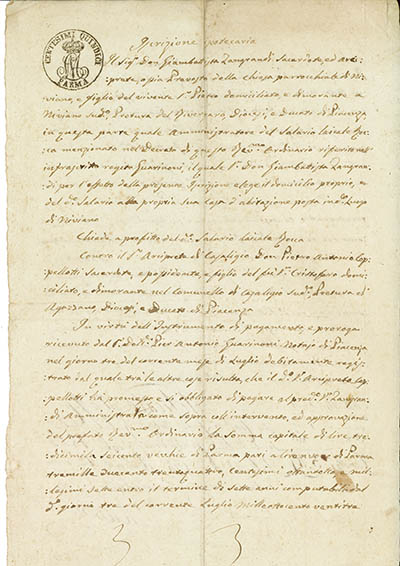 CENTESIMI QUINDICI
PARMA
Iscrizione ipotecaria
Il Sigr. Don Giambatista Zangrandi Sacerdote, ed Arci:
:prete, o sia Prevosto della Chiesa parrocchiale di Ni:
:viano, e figlio del vivente Sr. Pietro domiciliato, e dimorante a
Niviano sudo. Pretura di Diocesi, e Ducato di Piacenza
in questa parte quale Amministratore del Salario laicale
menzionato nel Decreto di questo Revmo. Ordinario riferito nell'
infrascritto rogito Guarinoni, il quale Sr. Don Giambatista Zangran:
:di per l'effetto della presente Iscrizione elegge il domicilio proprio, e
del do. Salario alla propria sua casa d'abitazione posta in do. luogo
di Niviano
Chiede a profitto del do. Salario laicale
Contro il Sr. Arciprete di Casaliggio Don Pietro Antonio Cap:
:pellotti Sacerdote, e possidente, e figlio del fu Sr. Cristoforo domi:
:ciliato, e dimorante nel Comunello di Casaliggio sudo. Pretura di
Agazzano, Diocesi, e Ducato di Piacenza
In virtù dell'Instrumento di pagamento, e proroga
ricevuto dal Sr. Dor. Pier Antonio Guarinoni Notajo di Piacenza
nel giorno tre del corrente mese di Luglio debitamente regis:
:trato dal quale tra le altre cose risulta, che il do. Sr. Arciprete Cap:
:pellotti ha promesso, e si è obbligato di pagare al predo. Sr. Zangran:
:di Amministratore come sopra coll'intervento, ed approvazione
del prefato Revmo. Ordinario la Somma capitale di lire tre:
:dicimila seicento vecchie di Parma pari a lire nuove di Parma
tremille duecento trentaquattro, centesimi ottantotto, e mil:
:lesimi sette entro il termine di sette anni computabili dal
do. giorno tre del corrente Luglio Milleottocento ventitre
3 3